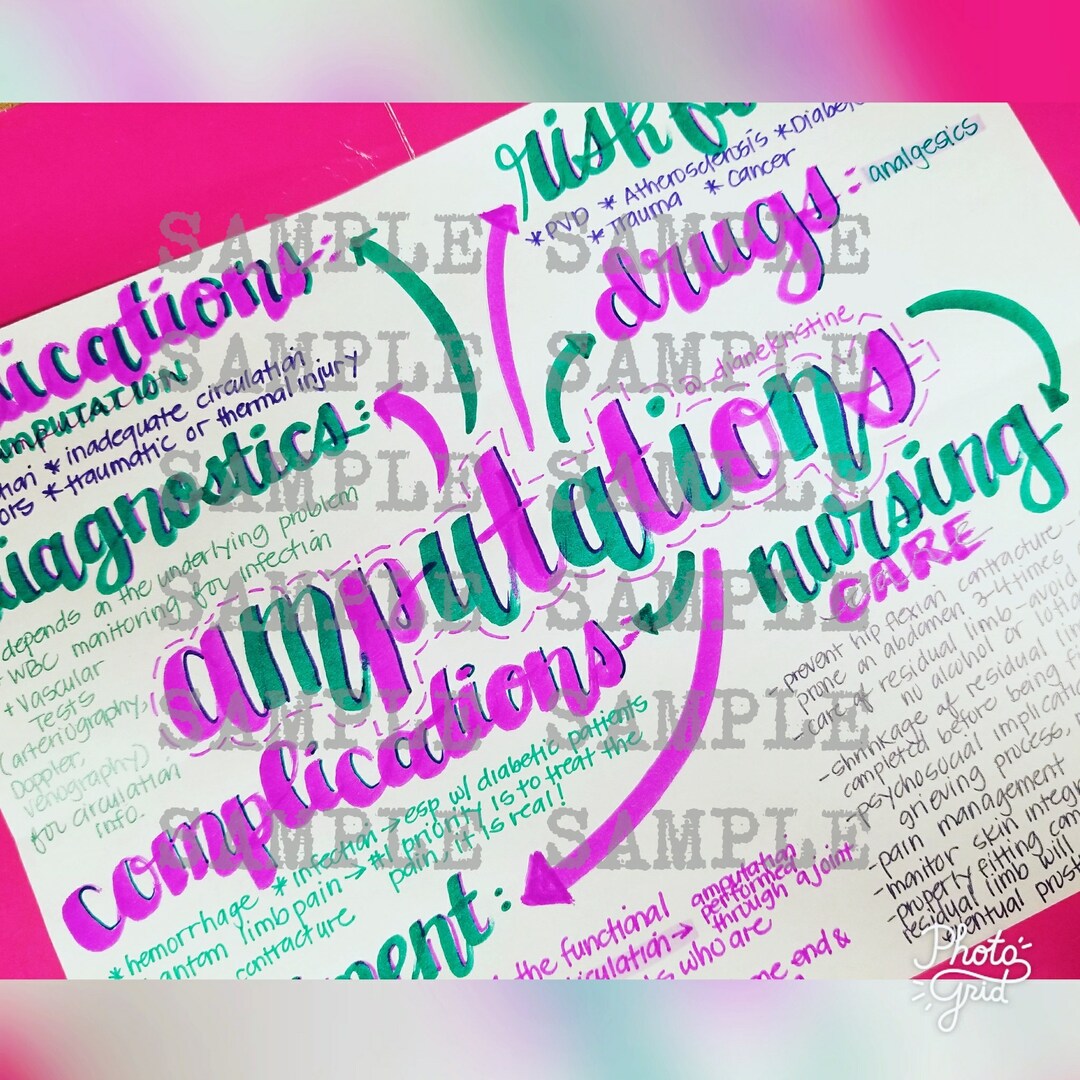 risk
*PVD *Atherosclerosis *Diabete
*Trauma *Cancer
drugs: analgesics
ications:
mputation
* inadequate circulation
ors *traumatic or thermal injury
diagnostics:
depends on the underlying problem
+WBC monitoring for infection
+Vascular
Tests
(arteriography,
Doppler,
venography)
for circulation
info.
@_dianekristine_
amputations
nursing
CARE
-prevent hip flexion contracture-
prone on abdomen 3-4 times
-care of residual limb-avoid
no alcohol or lotio
-shrinkage of residual lim
completed before being fi
-psychosocial implicati
grieving process,
-pain management
-monitor skin integr
-properly fitting
residual limb will
eventual prost
complications:
*hemorrhage *infection→esp w/ diabetic patients
antom limb pain→#1 priority is to treat the
pain, it is real!
contracture
ment:
the functional
culation→
amputation
performed
through a joint
s who are
me end &
SAMPLE SAMPLE
SAMPLE SAMPLE
SAMPLE SAMPLE
SAMPLE SAMPLE
SAMPLE SAMPLE
SAMPLE SAMPLE
Photo
Grid